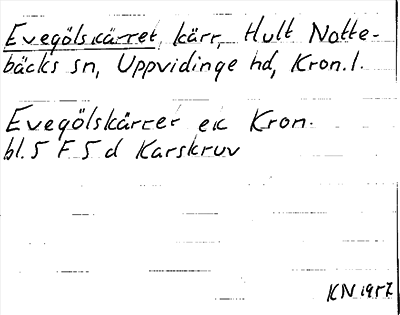 Evegölskärret, kärr, Hult Notte-
bäcks sn, Uppvidinge hd, Kron.l.
Evegölskärret ek Kron.
bl. 5 F 5 d Karskruv
KN 1957